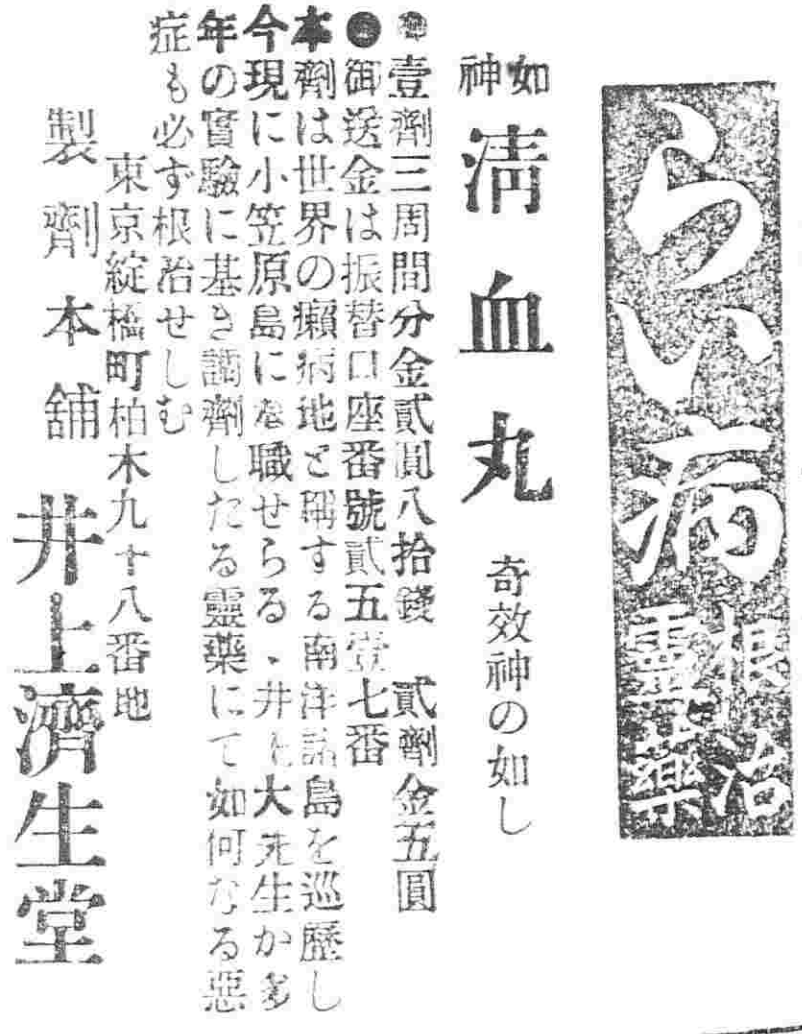 らい病
根治
靈藥
如神
淸血丸
奇效神の如し
●壹劑三周間分金貳圓八拾錢 貳劑金五圓
●御送金は振替口座番號貳五壹七番
本劑は世界の癩病地と稱する南洋諸島を巡歷し
今現に小笠原島に在職せらるゝ井上大先生か多
年の實驗に基き調劑したる靈藥にて如何なる惡
症も必ず根治せしむ
東京綻橋町柏木九十八番地
製劑本舖
井上濟生堂